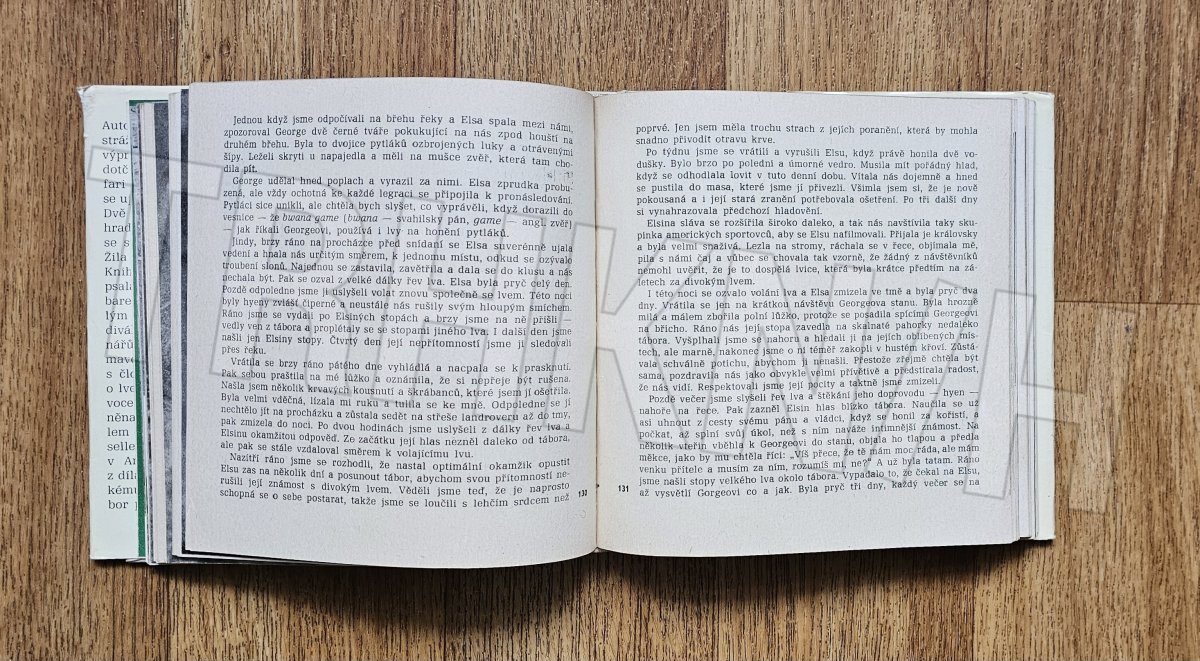 Auto
stráž
výpr
dotč
fari
se uj
Dvě
hrad
se s
Žila
Knih
psala
bare
lým
divá
nářů
mavo
s člo
o lve
voce
něna
lem
seile
v Ar
z díla
kému
bor j
Jednou když jsme odpočívali na břehu řeky a Elsa spala mezi námi,
zpozoroval George dvě černé tváře pokukující na nás zpod houští na
druhém břehu. Byla to dvojice pytláků ozbrojených luky a otrávenými
šípy. Leželi skryti u napajedla a měli na mušce zvěř, která tam cho-
dila pít.
George udělal hned poplach a vyrazil za nimi. Elsa zprudka probu-
zená, ale vždy ochotná ke každé legraci se připojila k pronásledování.
Pytláci sice unikli, ale chtěla bych slyšet, co vyprávěli, když dorazili do
vesnice — že bwana game (bwana — svahilsky pán, game — angl. zvěř)
jak říkali Georgeovi, používá i lvy na honění pytláků.
Jindy, brzy ráno na procházce před snídaní se Elsa suverénně ujala
vedení a hnala nás určitým směrem, k jednomu místu, odkud se ozývalo
troubení slonů. Najednou se zastavila, zavětřila a dala se do klusu a nás
nechala být. Pak se ozval z velké dálky řev lva. Elsa byla pryč celý den.
Pozdě odpoledne jsme ji uslyšeli volat znovu společně se lvem. Této noci
byly hyeny zvlášť čiperné a neustále nás rušily svým hloupým smíchem.
Ráno jsme se vydali po Elsiných stopách a brzy jsme na ně přišli —
vedly ven z tábora a proplétaly se se stopami jiného lva. I další den jsme
našli jen Elsiny stopy. Čtvrtý den její nepřítomností jsme ji sledovali
přes řeku.
Vrátila se brzy ráno pátého dne vyhládlá a nacpala se k prasknutí.
Pak sebou praštila na mé lůžko a oznámila, že si nepřeje být rušena.
Našla jsem několik krvavých kousnutí a škrábanců, které jsem jí ošetřila.
Byla velmi vděčná, lízala mi ruku a tulila se ke mně. Odpoledne se jí
nechtělo jít na procházku a zůstala sedět na střeše landroveru až do tmy,
pak zmizela do noci. Po dvou hodinách jsme uslyšeli z dálky řev lva a
Elsinu okamžitou odpověď. Ze začátku její hlas nezněl daleko od tábora,
ale pak se stále vzdaloval směrem k volajícímu lvu.
Nazítří ráno jsme se rozhodli, že nastal optimální okamžik opustit
Elsu zas na několik dní a posunout tábor, abychom svou přítomností ne-
rušili její známost s divokým lvem. Věděli jsme teď, že je naprosto
schopná se o sebe postarat, takže jsme se loučili s lehčím srdcem než
130
poprvé. Jen jsem měla trochu strach z jejích poranění, která by mohla
snadno přivodit otravu krve.
Po týdnu jsme se vrátili a vyrušili Elsu, když právě honila dvě vo-
dušky. Bylo brzo po poledni a úmorné vedro. Musila mít pořádný hlad,
když se odhodlala lovit v tuto denní dobu. Vítala nás dojemně a hned
se pustila do masa, které jsme jí přivezli. Všimla jsem si, že je nově
pokousaná a i její stará zranění potřebovala ošetření. Po tři další dny
si vynahrazovala předchozí hladovění.
Elsina sláva se rozšířila široko daleko, a tak nás navštívila taky sku-
pinka amerických sportovců, aby se Elsu nafilmovali. Přijala je královsky
a byla velmi snaživá. Lezla na stromy, ráchala se v řece, objímala mě,
pila s námi čaj a vůbec se chovala tak vzorně, že žádný z návštěvníků
nemohl uvěřit, že je to dospělá lvice, která byla krátce předtím na zá-
letech za divokým lvem.
I této noci se ozvalo volání lva a Elsa zmizela ve tmě a byla pryč dva
dny. Vrátila se jen na krátkou návštěvu Georgeova stanu. Byla hrozně
milá a málem zbořila polní lůžko, protože se posadila spícímu Georgeovi
na břicho. Ráno nás její stopa zavedla na skalnaté pahorky nedaleko
tábora. Vyšplhali jsme se nahoru a hledali ji na jejích oblíbených mís-
tech, ale marně, nakonec jsme o ni téměř zakopli v hustém křoví. Zůstá-
vala schválně potichu, abychom ji nenašli. Přestože zřejmě chtěla být
sama, pozdravila nás jako obvykle velmi přívětivě a předstírala radost,
že nás vidí. Respektovali jsme její pocity a taktně jsme zmizeli.
Pozdě večer jsme slyšeli řev lva a štěkání jeho doprovodu — hyen —
nahoře na řece. Pak zazněl Elsin hlas blízko tábora. Naučila se už
asi uhnout z cesty svému pánu a vládci, když se honil za kořistí, a
počkat, až splní svůj úkol, než s ním naváže intimnější známost. Na
několik vteřin vběhla k Georgeovi do stanu, objala ho tlapou a předla
měkce, jako by mu chtěla říci: „Víš přece, že tě mám moc ráda, ale mám
venku přítele a musím za ním, rozumíš mi, ne?" A už byla tatam. Ráno
jsme našli stopy velkého lva okolo tábora. Vypadalo to, že čekal na Elsu,
až vysvětlí Gorgeovi co a jak. Byla pryč tři dny, každý večer se na
131